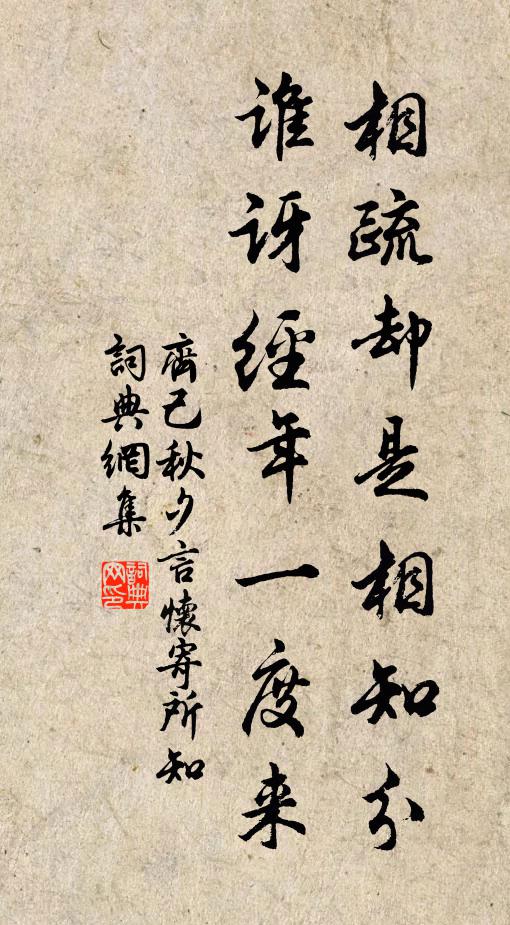 相疏却是相知分
谁讶经年一度来
齊己秋夕言懷寄所知
詞典網集
詞典网印